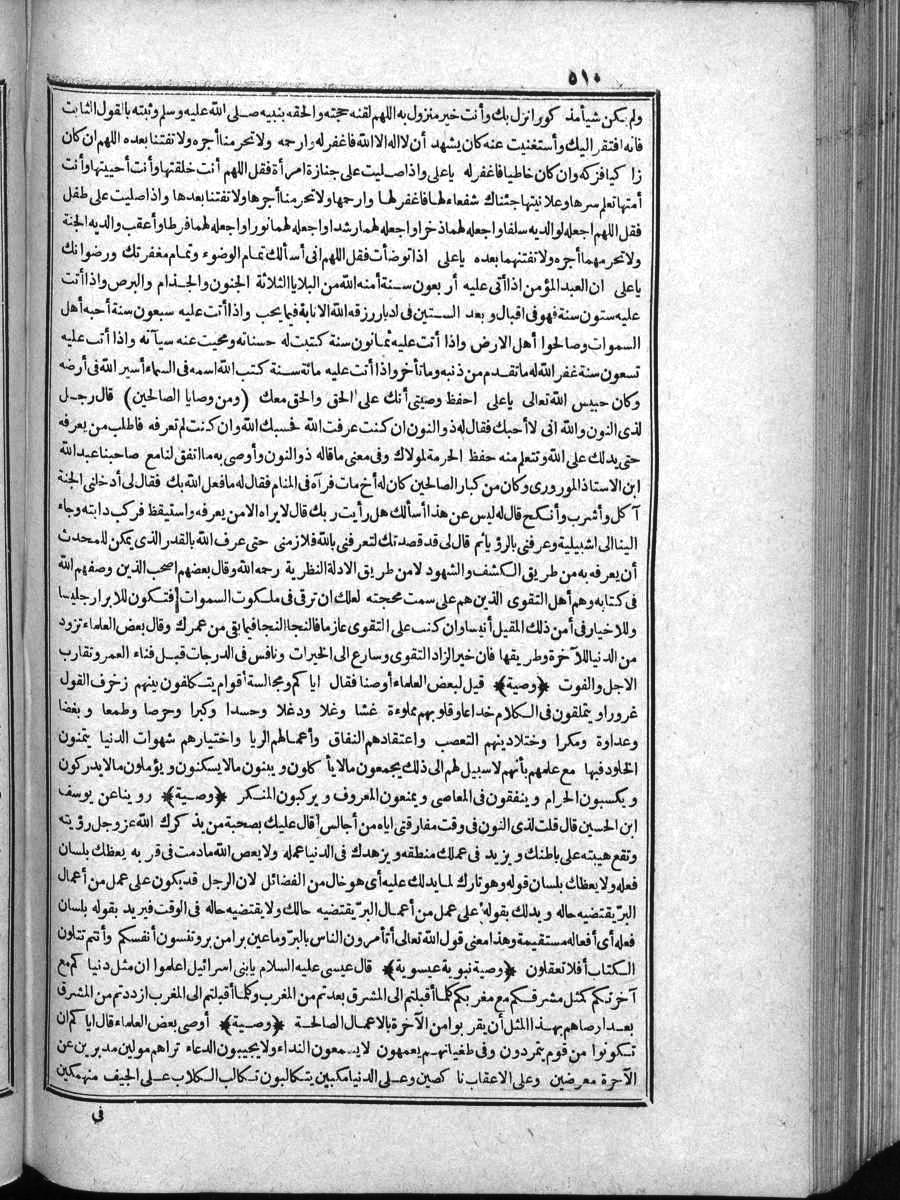 ٥١٠
ولم يكن شيأ مذكورا نزل بك وأنت خير منزول به اللهم لقنه حجته والحقه بنبيه صلى الله عليه وسلم وثبته بالقول الثابت
فانه افتقر اليك وأستغنيت عنه كان يشهد أن لا اله الا الله فاغفر له وارحمه ولا تحرمنا أجره ولا تفتنا بعده اللهم ان كان
زاكيا فزكه وان كان خاطيا فاغفر له ياعلى واذا صليت على جنازة امرأة فقل اللهم أنت خلقتها وأنت أحييتها وأنت
أمتها تعلم سرها وعلانيتها جئناك شفعاء لها فاغفر لها وارحمها ولا تحرمنا أجرها ولا تفتنا بعدها واذا صليت على طفل
فقل اللهم اجعله لوالديه سلفا واجعله لهما ذخرا واجعله لهما رشدا واجعله لهما نورا واجعله لهما فرطا وأعقب والديه الجنة
ولا تحرمهما أجره ولا تفتنهما بعده ياعلى اذا توضأت فقل اللهم انى أسألك تمام الوضوء وتمام مغفرتك ورضوانك
ياعلى ان العبد المؤمن اذا أتى عليه أربعون سنة أمنه الله من البلايا الثلاثة الجنون والجذام والبرص واذا أتت
عليه ستون سنة فهو فى اقبال وبعد الستين فى ادبار رزقه الله الانابة فيما يحب واذا أتت عليه سبعون سنة أحبه أهل
السموات وصالحوا أهل الارض واذا أتت عليه ثمانون سنة كتبت له حسناته ومحيت عنه سيآته واذا أتت عليه
تسعون سنة غفر الله له ما تقدم من ذنبه وما تأخر واذا أتت عليه مائة سنة كتب الله اسمه فى السماء أسير الله فى أرضه
وكان حبيس الله تعالى ياعلى احفظ وصيتى أنك على الحق والحق معك (ومن وصايا الصالحين) قال رجل
لذى النون والله انى لاأحبك فقال له ذو النون ان كنت عرفت الله فحسبك الله وان كنت لم تعرفه فاطلب من يعرفه
حتى يدلك على الله وتتعلم منه حفظ الحرمة لمولاك وفى معنى ما قاله ذو النون وأوصى به ما اتفق لنا مع صاحبنا عبد الله
ابن الاستاذ المورورى وكان من كبار الصالحين كان له أخ مات فرآه فى المنام فقال له ما فعل الله بك فقال لى أدخلنى الجنة
آكل وأشرب وأنكح قال له ليس عن هذا أسألك هل رأيت ربك قال لا يراه الا من يعرفه واستيقظ فركب دابته وجاء
الينا الى اشبيلية وعرفنى بالرؤيا ثم قال لى قد قصدتك لتعرفنى بالله فلازمنى حتى عرف الله بالقدر الذى يمكن للمحدث
أن يعرفه به من طريق الكشف والشهود لا من طريق الادلة النظرية رحمه الله وقال بعضهم اصحب الذين وصفهم الله
فى كتابه وهم أهل التقوى الذين هم على سمت محجته لعلك ان ترقى فى ملكوت السموات فتكون للابرار جليسا
وللاخيار فى أمن ذلك المقيل أنيسا وان كنت على التقوى عازما فالنجا النجا فيما بقى من عمرك وقال بعض العلماء تزود
من الدنيا للآخرة وطريقها فان خير الزاد التقوى وسارع الى الخيرات ونافس فى الدرجات قبل فناء العمر وتقارب
الاجل والفوت ﴿وصية﴾ قيل لبعض العلماء أوصنا فقال اياكم ومجالسة أقوام يتكلفون بينهم زخرف القول
غرورا ويتملقون فى الكلام خداعا وقلوبهم مملوءة غشا وغلا ودغلا وحسدا وكبرا وحرصا وطمعا وبغضا
وعداوة ومكرا وختلا دينهم التعصب واعتقادهم النفاق وأعمالهم الريا واختيارهم شهوات الدنيا يتمنون
الخلود فيها مع علمهم بأنهم لا سبيل لهم الى ذلك يجمعون مالا يأكلون ويبنون مالا يسكنون ويؤملون مالا يدركون
ويكسبون الحرام وينفقون فى المعاصى ويمنعون المعروف ويركبون المنكر ﴿وصية﴾ روينا عن يوسف
ابن الحسين قال قلت لذى النون فى وقت مفارقتى اياه من أجالس قال عليك بصحبة من يذكرك الله عز وجل رؤيته
وتقع هيبته على باطنك ويزيد فى عملك منطقه ويزهدك فى الدنيا عمله ولا يعص الله ما دمت فى قربه يعظك بلسان
فعله ولا يعظك بلسان قوله وهو تارك لما يدلك عليه أى هو خال من الفضائل لان الرجل قد يكون على عمل من أعمال
البر يقتضيه حاله ويدلك بقوله على عمل من أعمال البر يقتضيه حالك ولا يقتضيه حاله فى الوقت فيريد بقوله بلسان
فعله أى أفعاله مستقيمة وهذا معنى قول الله تعالى أتأمرون الناس بالبر وما عين برا من بر وتنسون أنفسكم وأنتم تتلون
الكتاب أفلا تعقلون ﴿وصية نبوية عيسوية﴾ قال عيسى عليه السلام يابنى اسرائيل اعلموا ان مثل دنياكم مع
آخرتكم كمثل مشرقكم مع مغربكم كلما أقبلتم الى المشرق بعدتم من المغرب وكلما أقبلتم الى المغرب ازددتم من المشرق
بعدا وصاهم بهذا المثل أن يقربوا من الآخرة بالاعمال الصالحة ﴿وصية﴾ أوصى بعض العلماء قال اياكم ان
تكونوا من قوم يتمردون وفى طغيانهم يعمهون لا يسمعون النداء ولا يجيبون الدعاء تراهم مولين مدبرين عن
الآخرة معرضين وعلى الاعقاب ناكصين وعلى الدنيا مكبين يتكالبون تكالب الكلاب على الجيف منهمكين
فى